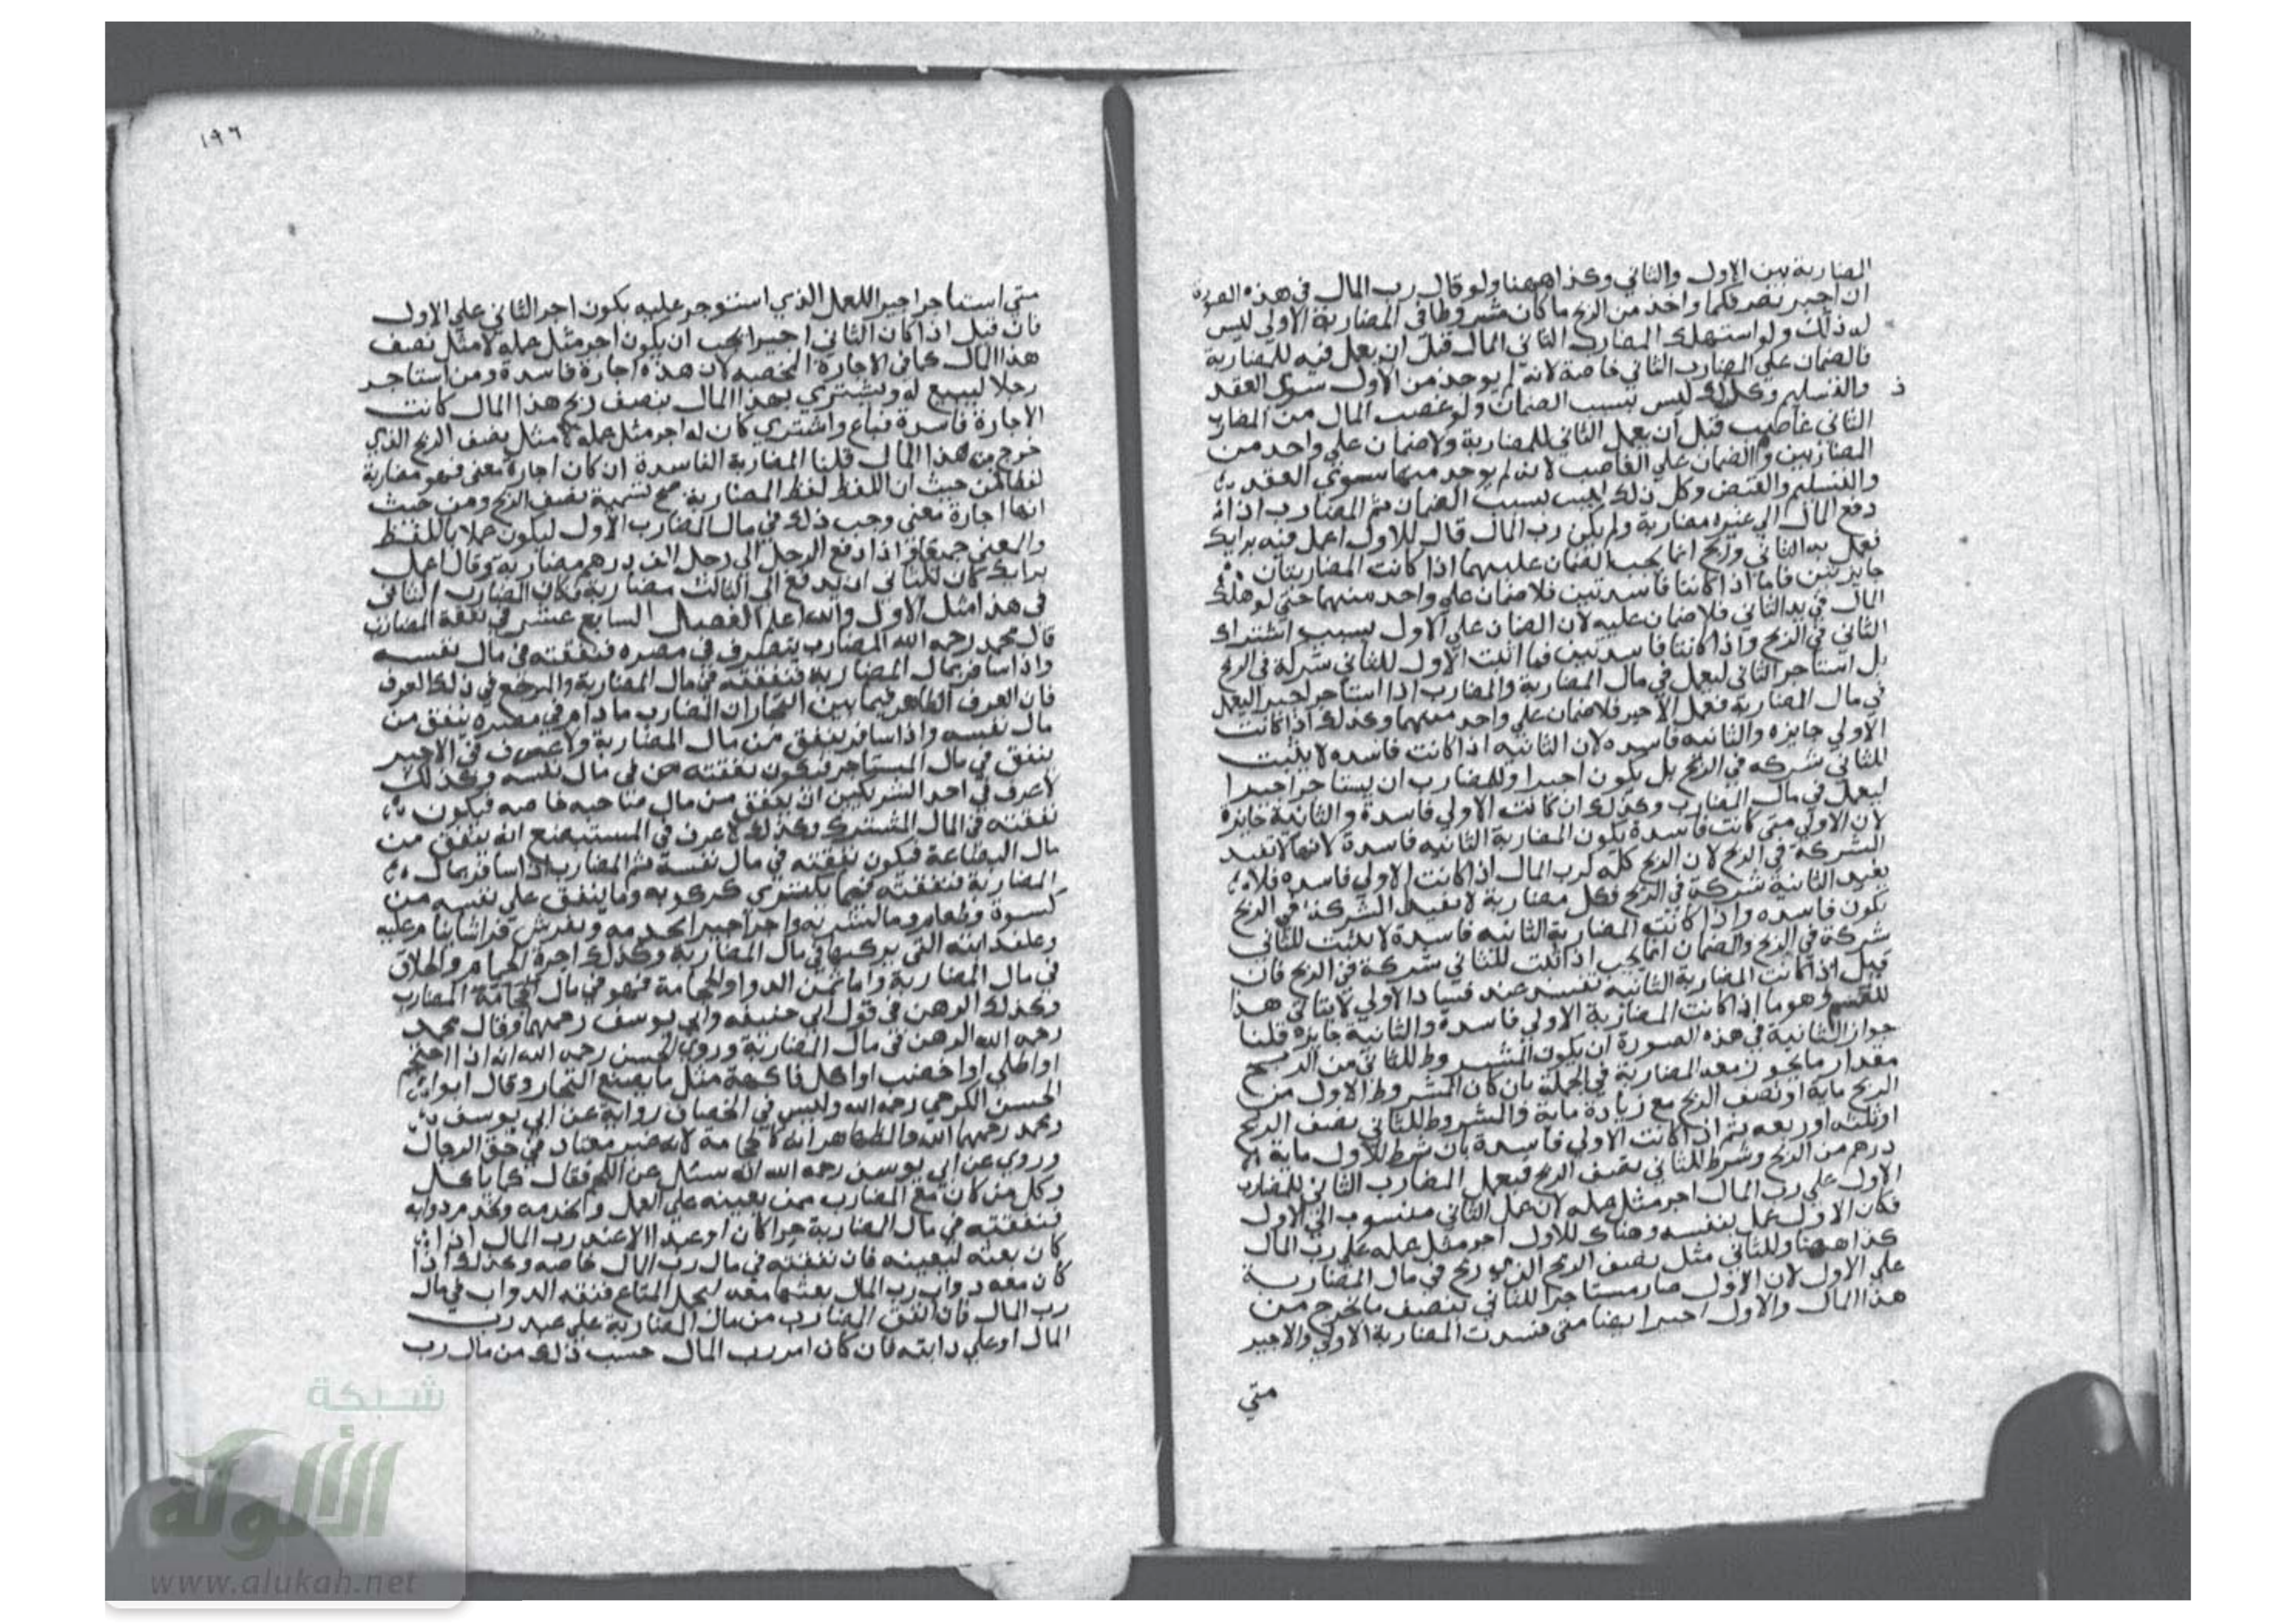 المضاربة بين الاول والثاني وكذا ههنا ولو قال رب المال في هذه الصورة
ان اجيز تصرفكما واخذ من الربح ما كان مشروطا في المضاربة الاولي ليس
له ذلك ولو استهلك المضارب الثاني المال قبل ان يعمل فيه للمضاربة
فالضمان علي المضارب الثاني خاصة لانه لم يوجد من الاول سوي العقد
والتسليم وكل ذلك ليس بسبب الضمان ولو غصب المال من المضارب
الثاني غاصب قبل ان يعمل الثاني للمضاربة ولا ضمان علي واحد من
المضاربين والضمان علي الغاصب لانه لم يوجد منهما سوي العقد
والتسليم والقبض وكل ذلك ليس بسبب الضمان ثم المضارب اذا
دفع المال الي غيره مضاربة ولم يكن رب المال قال للاول اعمل فيه برايك
فعمل به الثاني وربح انما يجب الضمان عليهما اذا كانت المضاربتان
جايزتين فاما اذا كانتا فاسدتين فلا ضمان علي واحد منهما حتي لو هلك
المال في يد الثاني فلا ضمان عليه لان الضمان علي الاول بسبب اشتراك
الثاني في الربح واذا كانتا فاسدتين فما اثبت الاول للثاني شركة في الربح
بل استاجر الثاني ليعمل في مال المضاربة والمضارب اذا استاجر اجيرا ليعمل
في مال المضاربة فعمل الاجير فلا ضمان علي واحد منهما وكذلك اذا كانت
الاولي جايزه والثانيه فاسده لان الثانيه اذا كانت فاسده لا يثبت
للثاني شركه في الربح بل يكون اجيرا وللمضارب ان يستاجر اجيرا
ليعمل في مال المضارب وكذلك ان كانت الاولي فاسدة والثانية جايزة
لان الاولي متي كانت فاسدة يكون المضاربة الثانيه فاسدة لانها لا تفيد
الشركة في الربح لان الربح كله لرب المال اذا كانت الاولي فاسده فلا
يفيد الثانية شركة في الربح فكل مضاربة لا يفيد الشركة في الربح
يكون فاسده واذا كانت المضاربة الثانيه فاسدة لا يثبت للثاني
شركة في الربح والضمان انما يجب اذا اثبت للثاني شركة في الربح فان
قيل اذا كانت المضاربة الثانيه تفسد عند فساد الاولي لا يتاتي هذا
القسم وهو ما اذا كانت المضاربة الاولي فاسدة والثانية جايزه قلنا
جواز الثانية في هذه الصورة ان يكون المشروط للثاني من الربح
مقدار ما يجوز معه المضاربة في الجملة بان كان المشروط للاول من
الربح ماية او نصف الربح مع زيادة ماية والمشروط للثاني نصف الربح
او ثلثه او ربعه ثم اذا كانت الاولي فاسدة بان شرط للاول ماية
درهم من الربح وشرط للثاني نصف الربح فعمل المضارب الثاني للمضارب
الاول علي رب المال اجر مثل عمله لان عمل الثاني منسوب الي الاول
فكان الاول عمل بنفسه وهناك للاول اجر مثل عمله علي رب المال
كذا ههنا وللثاني مثل نصف الربح الذي ربح في مال المضاربة
علي الاول لان الاول صار مستاجرا للثاني بنصف ما يخرج من
هذا المال والاول اجير ايضا متي فسدت المضاربة الاولي والاجير
متي
ذ
١٩٦
متي استاجر اجيرا للعمل الذي استوجر عليه يكون اجر الثاني علي الاول
فان قيل اذا كان الثاني اجيرا يجب ان يكون اجر مثل عمله لا مثل نصف
هذا المال كما في الاجارة المحضه لان هذه اجارة فاسدة ومن استاجر
رجلا ليبيع له ويشتري بهذا المال بنصف ربح هذا المال كانت
الاجارة فاسدة فباع واشتري كان له اجر مثل عمله لا مثل نصف الربح الذي
خرج من هذا المال قلنا المضاربة الفاسدة ان كان اجارة معني فهو مضاربة
لفظا فمن حيث ان اللفظ لفظ المضاربة صح تسمية نصف الربح ومن حيث
انها اجارة معني وجب ذلك في مال المضارب الاول ليكون عملا باللفظ
والمعني جميعا واذا دفع الرجل الي رجل الف درهم مضاربة وقال اعمل
برايك كان للثاني ان يدفع الي الثالث مضاربة وكان المضارب الثاني
في هذا مثل الاول والله اعلم الفصل السابع عشر في نفقة المضارب
قال محمد رحمه الله المضارب يتصرف في مصره فنفقته في مال نفسه
واذا سافر بمال المضاربة فنفقته في مال المضاربة والمرجع في ذلك العرف
فان العرف الظاهر فيما بين التجار ان المضارب ما دام في مصره ينفق من
مال نفسه واذا سافر ينفق من مال المضاربة ولا عرف في الاجير
ينفق في مال المستاجر فتكون نفقته في مال نفسه وكذلك
لا عرف في احد الشريكين ان ينفق من مال صاحبه خاصه فيكون
نفقته في المال المشترك وكذلك لا عرف في المستبضع انه ينفق من
مال البضاعة فيكون نفقته في مال نفسه ثم المضارب اذا سافر بمال
المضاربة فنفقته فيما يكتري كركوبه وما ينفق علي نفسه من
كسوة وطعام وما ليشربه واجر اجير يخدمه ويفرش فراشا ينام عليه
وعلف دابته التي يركبها في مال المضاربة وكذلك اجرة الحمام والحلاق
في مال المضاربة واما ثمن الدوا والحجامة فهو في مال المضارب
وكذلك الدهن في قول ابي حنيفه وابي يوسف رحمهما وقال محمد
رحمه الله الدهن في مال المضاربة وروي الحسن رحمه الله انه اذا احتجم
او اطلي او اختضب او اكل فاكهة مثل ما يصنع التجار وقال ابو
الحسن الكرخي رحمه الله وليس في الخضاب رواية عن ابي يوسف
ومحمد رحمهما الله والظاهر انه كالحجامة لانه غير معتاد في حق الرجال
وروي عن ابي يوسف رحمه الله انه سئل عن اللحم فقال كما ياكل
وكل من كان مع المضارب ممن يعينه علي العمل ويخدمه ويخدم دوابه
فنفقته في مال المضاربة حرا كان او عبدا الا عند رب المال اذا
كان بعثه ليعينه فان نفقته في مال رب المال خاصه وكذلك اذا
كان معه دواب رب المال بعثها معه ليحمل المتاع فنفقه الدواب في مال
رب المال فان انفق المضارب من مال المضاربة علي عبد رب
المال او علي دابته فان كان امر رب المال حسب ذلك من مال رب
شبكة
الألوكة
www.alukah.net